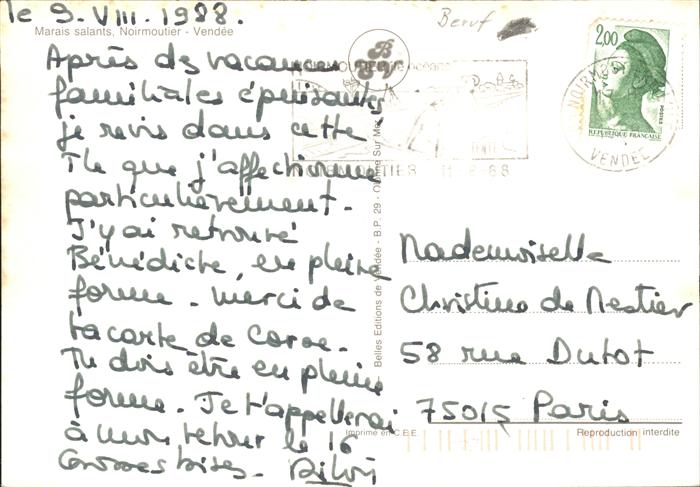 le 9. VIII. 1988.
Marais salants, Noirmoutier - Vendée
Après des vacances
familiales épuisantes,
je revis dans cette
Ile que j'affectionne
particulièrement.
J'y ai retrouvé
Bénédicte, en pleine
forme. Merci de
ta carte de Corse.
Tu dois être en pleine
forme. Je t'appellerai
à mon retour le 16
Grosses bises.
Belles Editions de Vendée - B.P. 29 - Olonne Sur Mer
Imprimé en C.E.E.
2,00
POSTES
REPUBLIQUE FRANÇAISE
VENDEE
Mademoiselle
Christine de Mestier
58 rue Dutot
75015 Paris
Reproduction interdite